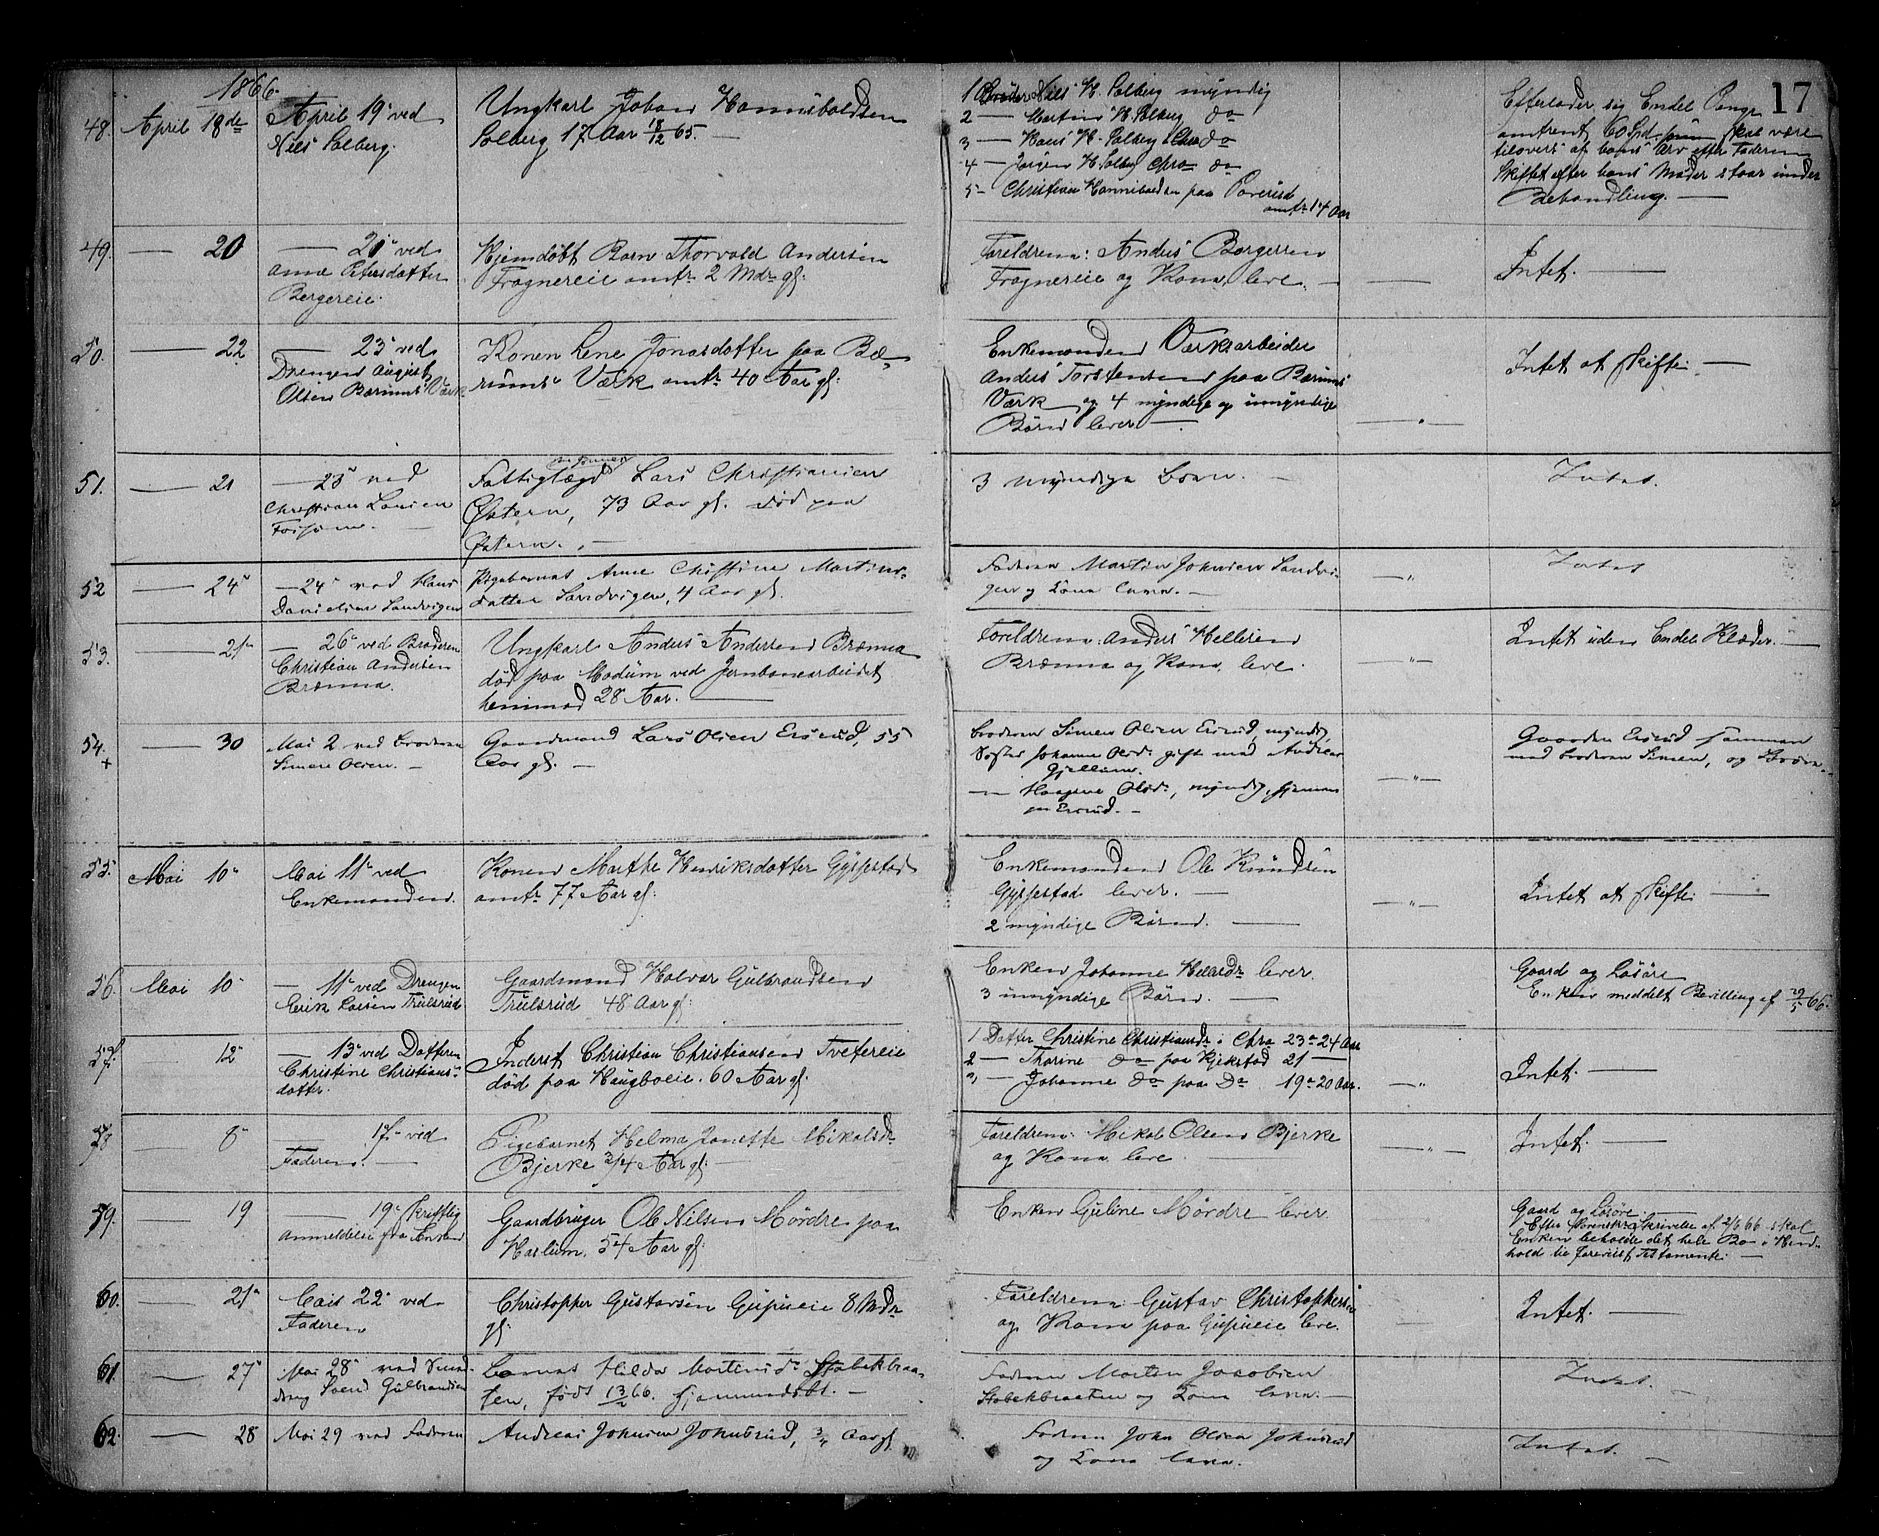 17
1866.
48. April 18de
April 19' ved
Nils Solberg.
Ungkarl Johan Hannibaldsen
Solberg 17 Aar 18/12 65. —
1 Broder Nils H. Solberg myndig
2 — Martin H. Solberg do
3 — Hans H. Solberg Chra do
4 — Jørgen H. Solberg Chra do
5 — Christian Hannibaldsen paa
amtr. 14 Aar
Efterlader sig Endel Penge
omtrent 60 Spd. skal være
tilovers af hans Arv efter Faderen
Skiftet efter hans Moder staar under
Behandling. —
49. — 20
— 21' ved
Anne Petersdatter
Bergereie.
Hjemdøbt Barn Thorvald Andersen
Fragnereie omtr. 2 Mdr. gl.
Foreldrene: Anders Borgersen
Fragnereie og Kone leve. —
Intet. —
50. — 22
— 23' ved
Drengen August
Olsen Bærums Værk
Konen Lene Jonasdatter paa Bæ-
rums Værk omtr. 40 Aar gl.
Enkemanden Værksarbeider
Anders Torstensen paa Bærums
Værk og 4 myndige og umyndige
Børn lever —
Intet at skifte. —
51. — 21
— 23' ved
Christian Larsen
Fossum. —
Fattiglægd Lars Christiansen
Østern, 73 Aar gl. Død paa
Østern. —
3 myndige Børn. —
Intet.
52 — 24'
— 24' ved Hans
Danielsen Sandvigen
Pigebarnet Anne Christine Martins-
datter Sandvigen, 4 Aar gl.
Faderen Martin Johnsen Sandvi-
gen og Kone leve. —
Intet
53. — 21'
— 26' ved Broderen
Christian Andersen
Brænna.
Ungkarl Anders Andersen Brænna
død paa Modum ved Jernbanearbeidet
henimod 28 Aar. —
Foreldrene: Anders Hellesen
Brænna og Kone leve.
Intet uden Endel Klæder. —
54. + — 30
Mai 2 ved Broderen
Simen Olsen. —
Gaardmand Lars Olsen Eisrud, 55
Aar gl. —
Broderen Simen Olsen Eisrud, myndig,
Søster Johanne Olsd. gift med Andreas
Gjellum.
— Olsd., myndig, hjemme
paa Eisrud. —
Gaarden Eisrud sammen
med Broderen Simen, og
55. Mai 10'
Mai 11' ved
Enkemanden.
Konen Marthe Henriksdatter Gyssestad
omtr. 77 Aar gl.
Enkemanden Ole Knudsen
Gyssestad lever. —
2 myndige Børn. —
Intet at skifte —
56. Mai 10'
— 11' ved Drengen
Erik Larsen Trulsrud
Gaardmand Halvor Gulbrandsen
Trulsrud 48 Aar gl.
Enken Johanne lever.
3 umyndige Børn. —
Gaard og Løsøre
Enken meddelt Bevilling af 29/5 66.
57. 12'
— 13' ved Datteren
Christine Christians-
datter.
Inderst Christian Christiansen Tvetereie
død paa Haugboeie. 60 Aar gl.
1 Datter Christine Christiansdr. i Chra 23 a 24 Aar
2 — Thorine do paa Kjekstad 21 —
3 — Johanne do paa do 19 a 20 Aar.
Intet. —
58 8'
— 17' ved
Faderen. —
Pigebarnet Helma Janette Mikalsdr.
Bjerke 3/4 Aar gl.
Foreldrene: Mikal Olsen Bjerke
og Kone leve. —
Intet. —
59. — 19
— 19' skriftlig
Anmeldelse fra Enken
Gaardbruger Ole Nilsen Mørdre paa
Haslum, 54 Aar gl.
Enken Guline Mørdre lever.
Gaard og Løsøre. —
Efter Skrivelse af 2/6 66 skal
Enken beholde det hele Bo i Hen-
hold til Testamente. —
60. — 21'
Mai 22' ved
Faderen
Christopher Gustavsen 8 Mdr.
gl.
Foreldrene: Gustav Christophersen
og Kone paa leve.
Intet. —
61. — 27'
Mai 28' ved
Gulbrandsen
Barnet Hilda Mortensd. Stabekbraa-
ten, født 13/2 66. hjemmedøbt. —
Faderen Morten Jacobsen
Stabekbraaten og Kone leve. —
Intet. —
62. — 28
Mai 29 ved Faderen
Andreas Johnsen Johnsrud, 3/4 Aar gl.
Faderen John Olsen Johnsrud
og Kone leve.
Intet. —